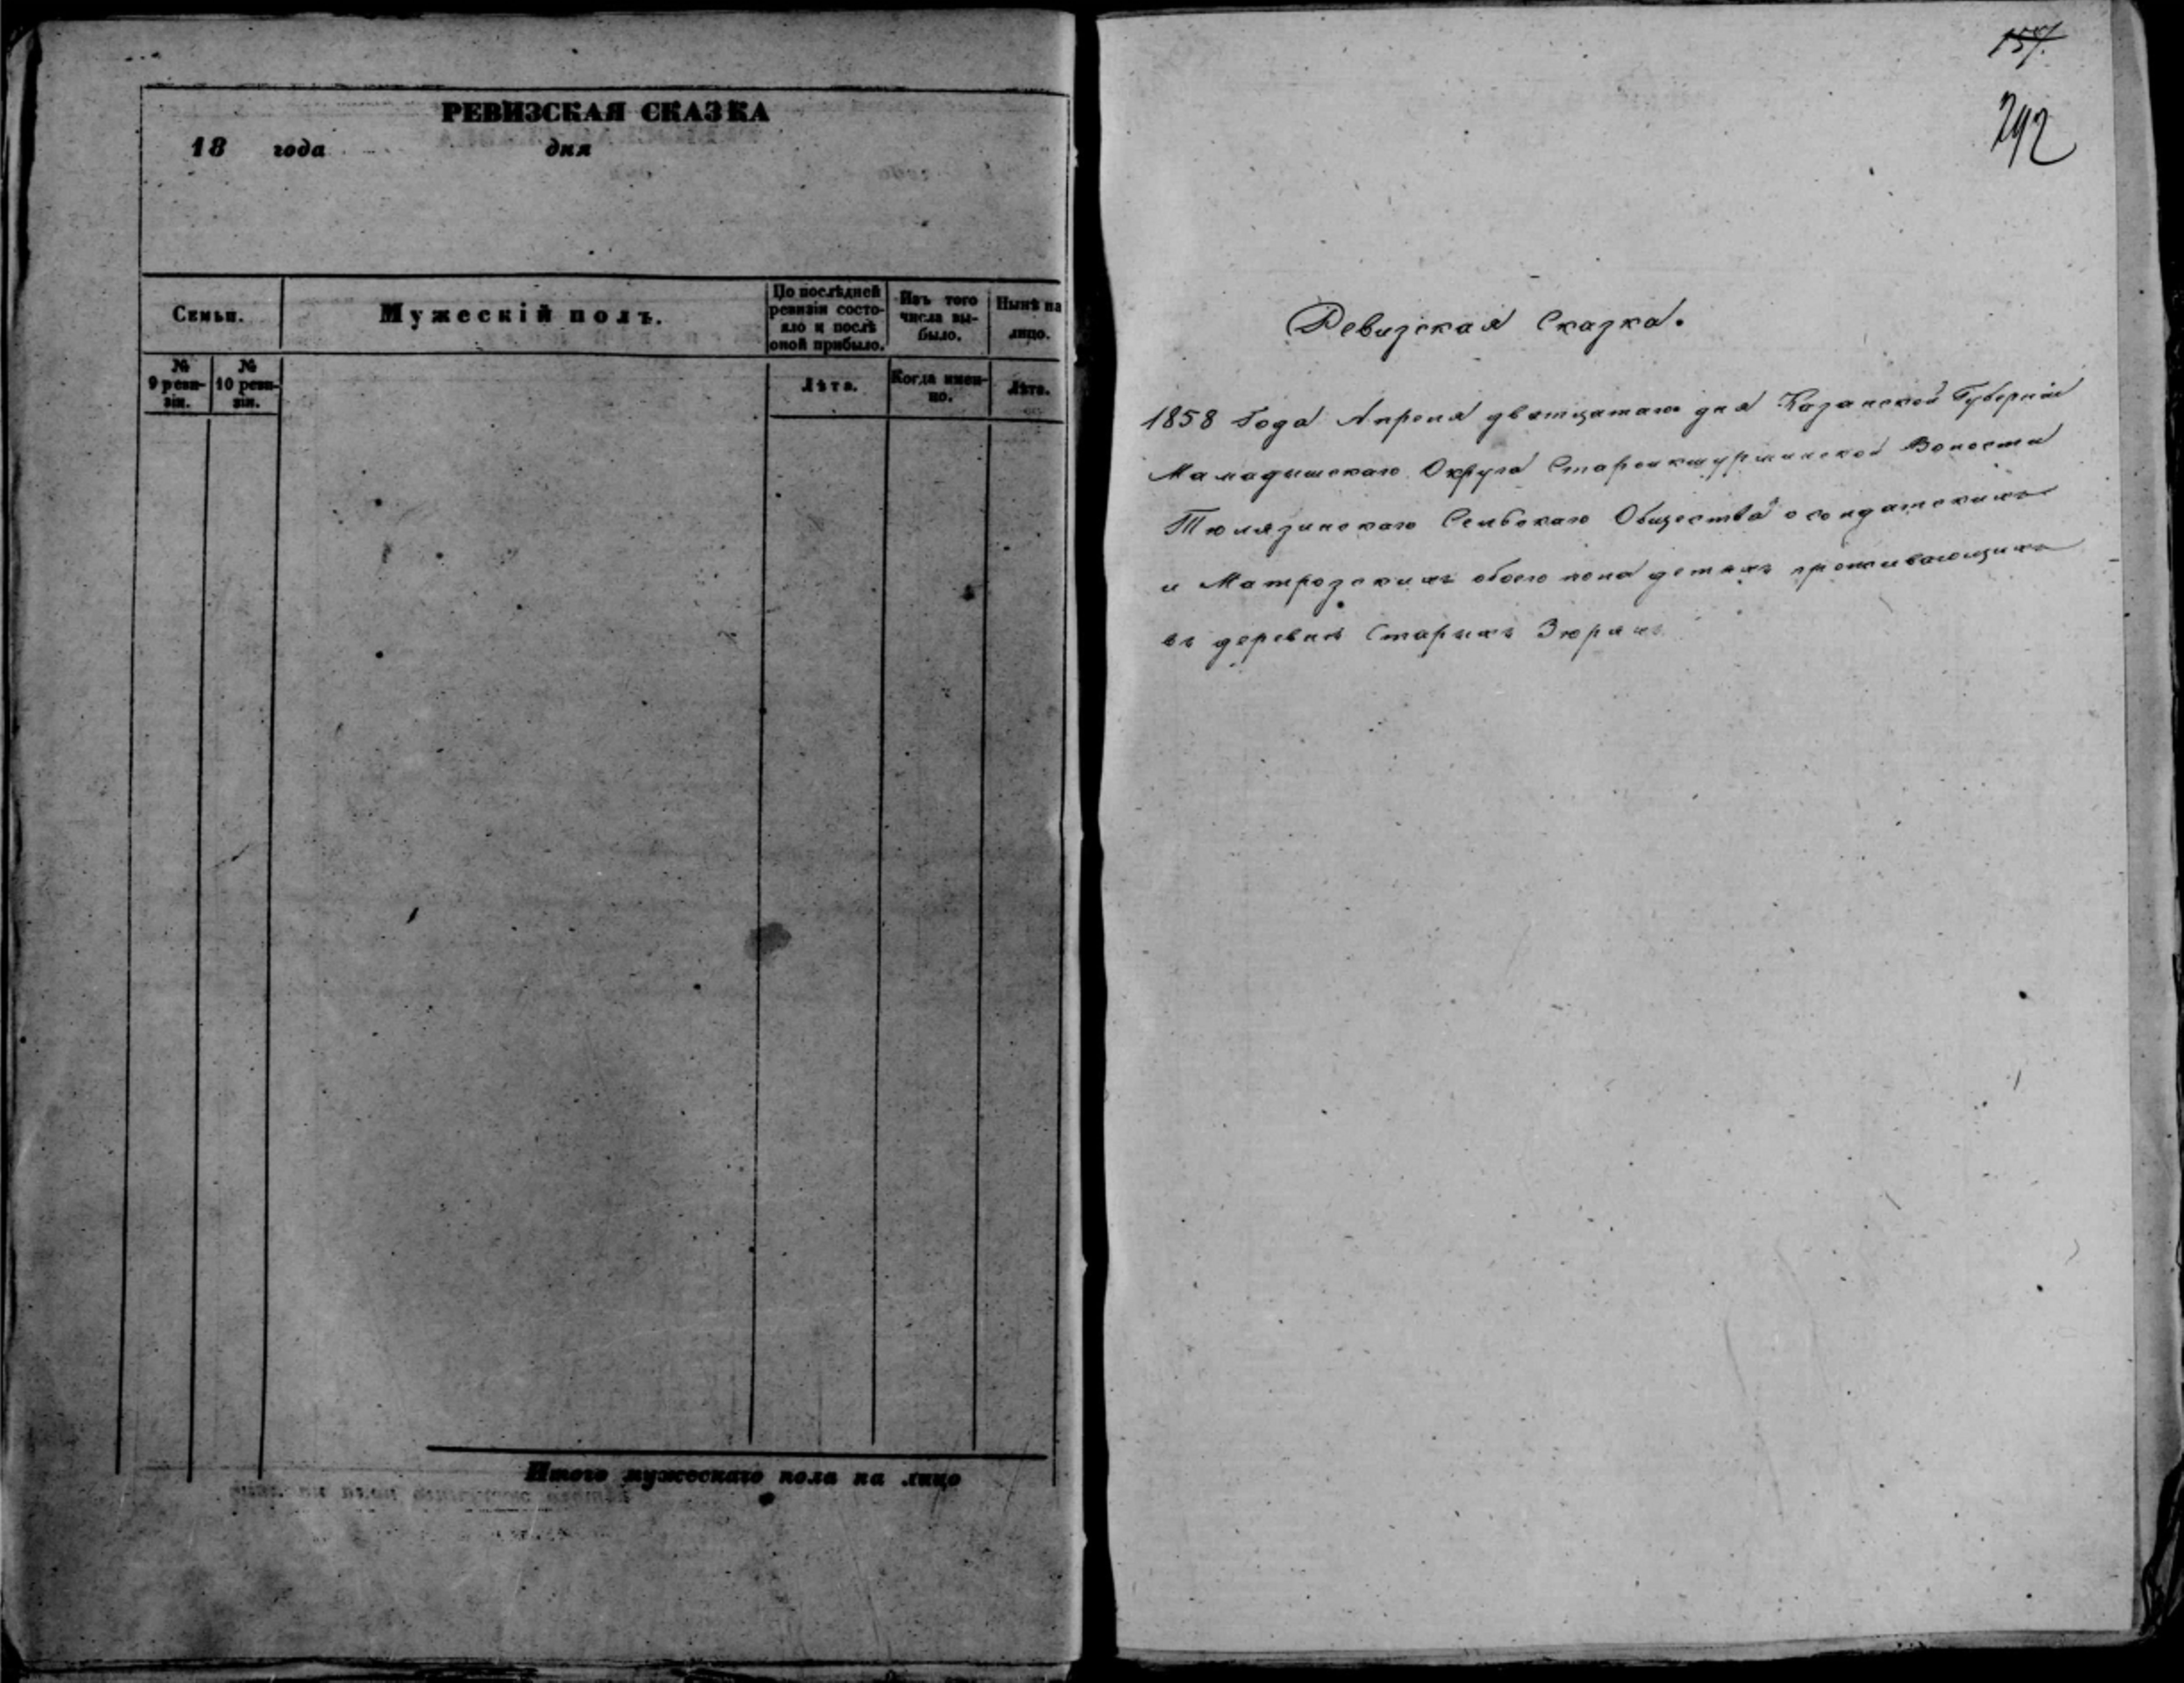 РЕВИЗСКАЯ СКАЗКА
18 года дня
Семьи.
Мужескій полъ.
По послѣдней
ревизіи состо-
яло и послѣ
оной прибыло.
Изъ того
числа вы-
было.
Нынѣ на
лицо.
№
9 реви-
зіи.
№
10 реви-
зіи.
Лѣта.
Когда имен-
но.
Лѣта.
Итого мужескаго пола на лицо
157.
292
Ревизская Сказка.
1858 Года Апреля двятцатаго дня Казанской Губерніи
Мамадышскаго Округа Староикшурминской Волости
Тюлязинскаго Сельскаго Общества о солдатскихъ
и Матрозскихъ обоего пола детяхъ проживающихъ
въ деревнѣ Старыхъ Зюряхъ